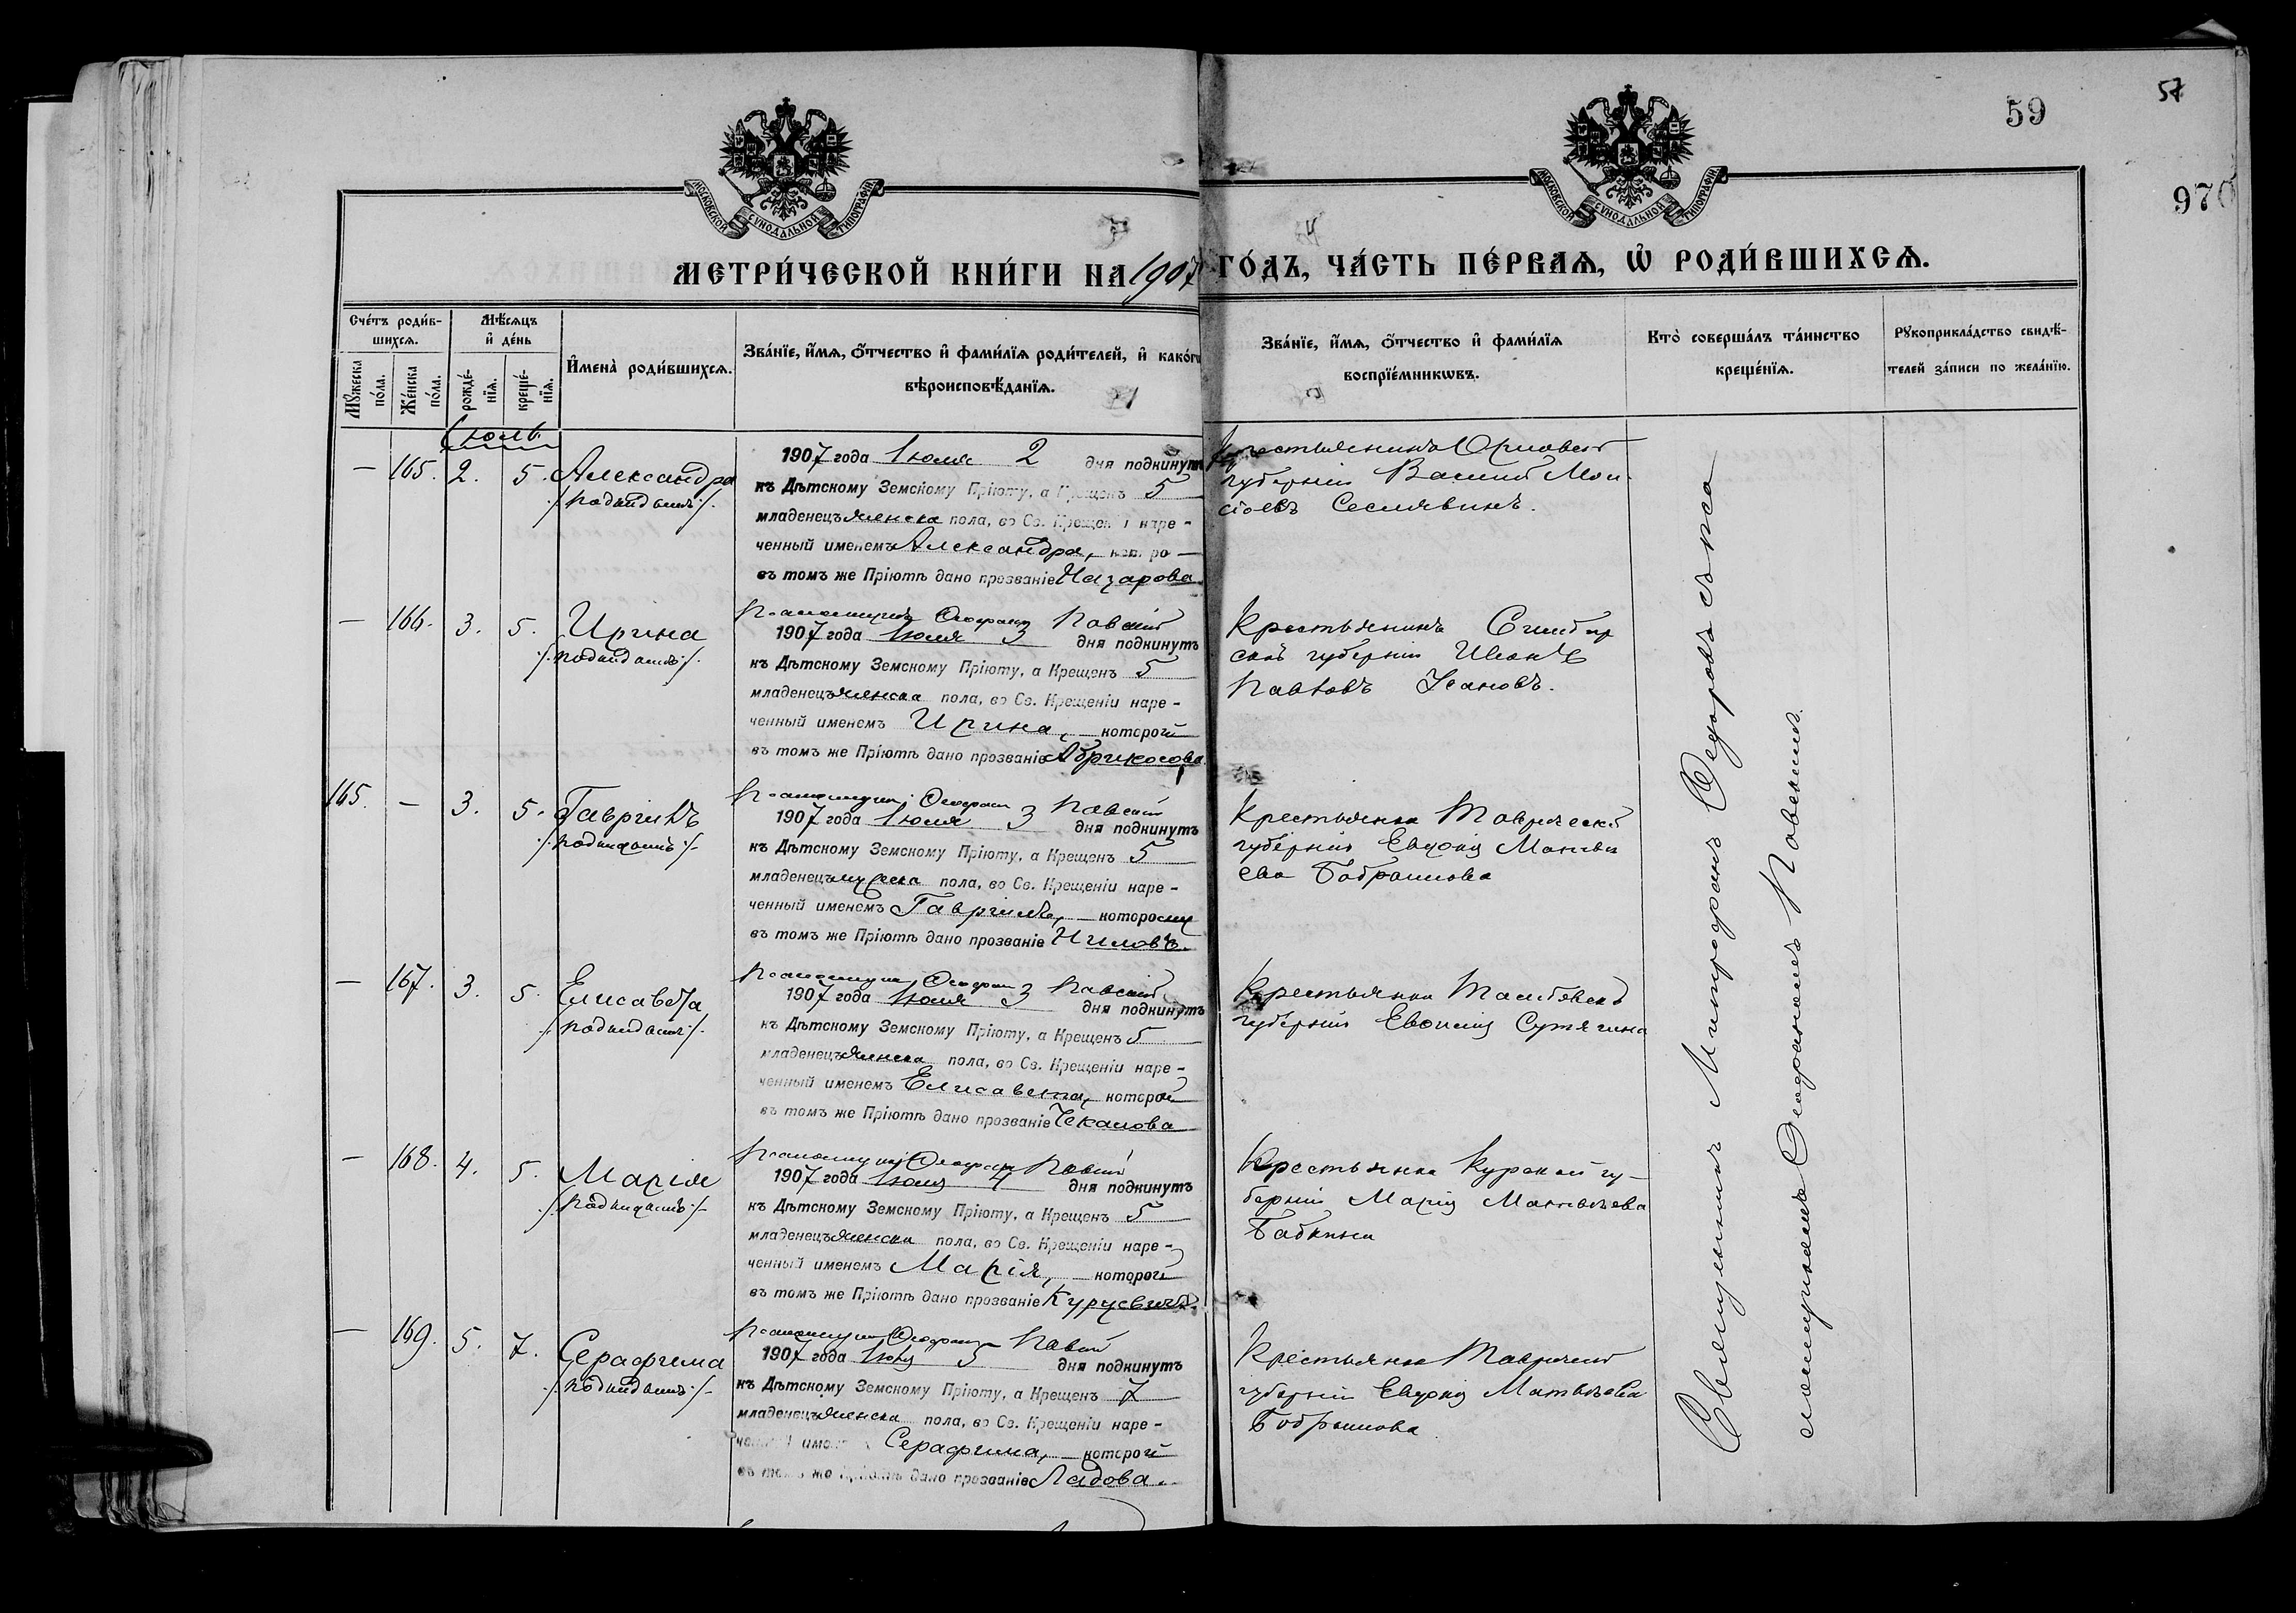 57
59
970
МОСКОВСКОЙ СѴНОДАЛЬНОЙ ТИПОГРАФІИ
МОСКОВСКОЙ СѴНОДАЛЬНОЙ ТИПОГРАФІИ
МЕТРИ́ЧЕСКОЙ КНИ́ГИ НА 1907 ГО́ДЪ, ЧА́СТЬ ПЕ́РВАѦ, Ѡ҆ РОДИ́ВШИХСѦ.
Сче́тъ роди́в-
шихсѧ.
Мꙋ́жеска по́ла.
Же́нска по́ла.
Мѣ́сѧцъ
и҆ де́нь
рожде́-
нїѧ.
креще́-
нїѧ.
И҆мена̀ роди́вшихсѧ.
Зва́нїе, и҆́мѧ, ѻ҆́тчество и҆ фами́лїѧ роди́телей, и҆ како́гѡ
вѣроисповѣ́данїѧ.
Зва́нїе, и҆́мѧ, ѻ҆́тчество и҆ фами́лїѧ
воспрїе́мникѡвъ.
Кто̀ соверша́лъ та́инство
креще́нїѧ.
Рꙋкоприкла́дство свидѣ́-
телей за́писи по жела́нїю.
Іюль
— 165. 2. 5. Александра
/:подкидышъ:/.
1907 года Іюля 2 дня подкинутъ
къ Дѣтскому Земскому Пріюту, а Крещенъ 5
младенецъ женска пола, во Св. Крещеніи наре-
ченный именемъ Александра,
въ томъ же Пріютѣ дано прозваніе Назарова
Крестьянинъ Орловской
губерніи Василій Мои-
сіевъ Сеславинъ.
— 166. 3. 5. Ирина
/:подкидышъ:/.
1907 года Іюля 3 дня подкинутъ
къ Дѣтскому Земскому Пріюту, а Крещенъ 5
младенецъ женска пола, во Св. Крещеніи наре-
ченный именемъ Ирина, — которой
въ томъ же Пріютѣ дано прозваніе Абрикосова.
Крестьянинъ Симбир
ской губерніи Иванъ
Павловъ Усановъ.
165. — 3. 5. Гавріилъ
/:подкидышъ:/.
1907 года Іюля 3 дня подкинутъ
къ Дѣтскому Земскому Пріюту, а Крещенъ 5
младенецъ мужеска пола, во Св. Крещеніи наре-
ченный именемъ Гавріилъ, — которому
въ томъ же Пріютѣ дано прозваніе Ниловъ.
Крестьянка Таврической
губерніи Евдокія Матвѣ
ева
— 167. 3. 5. Елисавета
/:подкидышъ:/.
1907 года Іюля 3 дня подкинутъ
къ Дѣтскому Земскому Пріюту, а Крещенъ 5
младенецъ женска пола, во Св. Крещеніи наре-
ченный именемъ Елисавета, которой
въ томъ же Пріютѣ дано прозваніе Чекалова
Крестьянка Тамбовской
губерніи Сутягина
— 168. 4. 5. Марія
/:подкидышъ:/.
1907 года Іюля 4 дня подкинутъ
къ Дѣтскому Земскому Пріюту, а Крещенъ 5
младенецъ женска пола, во Св. Крещеніи наре-
ченный именемъ Марія, — которой
въ томъ же Пріютѣ дано прозваніе
Крестьянка Курской гу-
берніи Марія Матвѣева
Бабкина
— 169. 5. 7. Серафима
/:подкидышъ:/.
1907 года Іюля 5 дня подкинутъ
къ Дѣтскому Земскому Пріюту, а Крещенъ 7
младенецъ женска пола, во Св. Крещеніи наре-
ченный именемъ Серафима, — которой
въ томъ же Пріютѣ дано прозваніе Ладова.
Крестьянка Таврической
губерніи Евдокія Матвѣева
Священникъ Митрофанъ